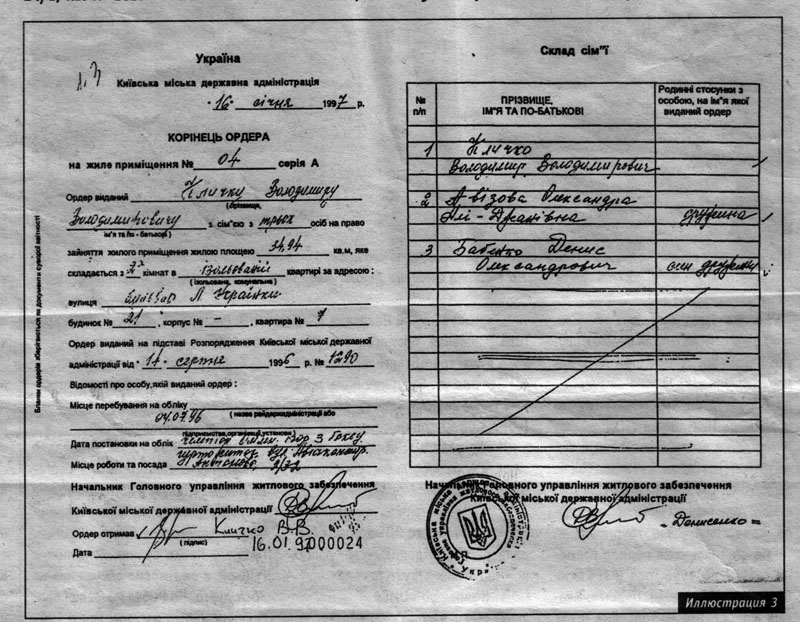 Україна
Київська міська державна адміністрація
"16" січня 1997 р.
КОРІНЕЦЬ ОРДЕРА
на жиле приміщення № 04 серія А
Ордер виданий Кличку Володимиру
(прізвище,
Володимировичу з сім'єю з трьох осіб на право
ім'я та по - батькові)
зайняття жилого приміщення жилою площею 34,94 кв.м, яке
складається з 2х кімнат в ізольованій квартирі за адресою :
(ізольована, комунальна)
вулиця бульвар Л Українки
будинок № 21, корпус № –, квартира № 7
Ордер виданий на підставі Розпорядження Київської міської державної
адміністрації від "14" серпня 1996 р. № 1290
Відомості про особу,якій виданий ордер :
Місце перебування на обліку
04.07.96 ( назва райдержадміністрації або
підприємства,організації,установи)
Дата постановки на облік
Місце роботи та посада Антонова 2/32
Начальник Головного управління житлового забезпечення
Київської міської державної адміністрації
Ордер отримав Кличко В.В.
( підпис)
Дата 16.01.97 000024
Бланки ордерів зберігаються як документи суворої звітності
Склад сім"ї
№ п/п
ПРІЗВИЩЕ, ІМ"Я ТА ПО-БАТЬКОВІ
Родинні стосунки з особою, на ім"я якої виданий ордер
1 Кличко
Володимир Володимирович
2 Авізова Олександра
Алі-Джанівна дружина
3 Бабенко Денис
Олександрович син дружини
Начальник Головного управління житлового забезпечення
Київської міської державної адміністрації
"Денисенко"
Иллюстрация 3